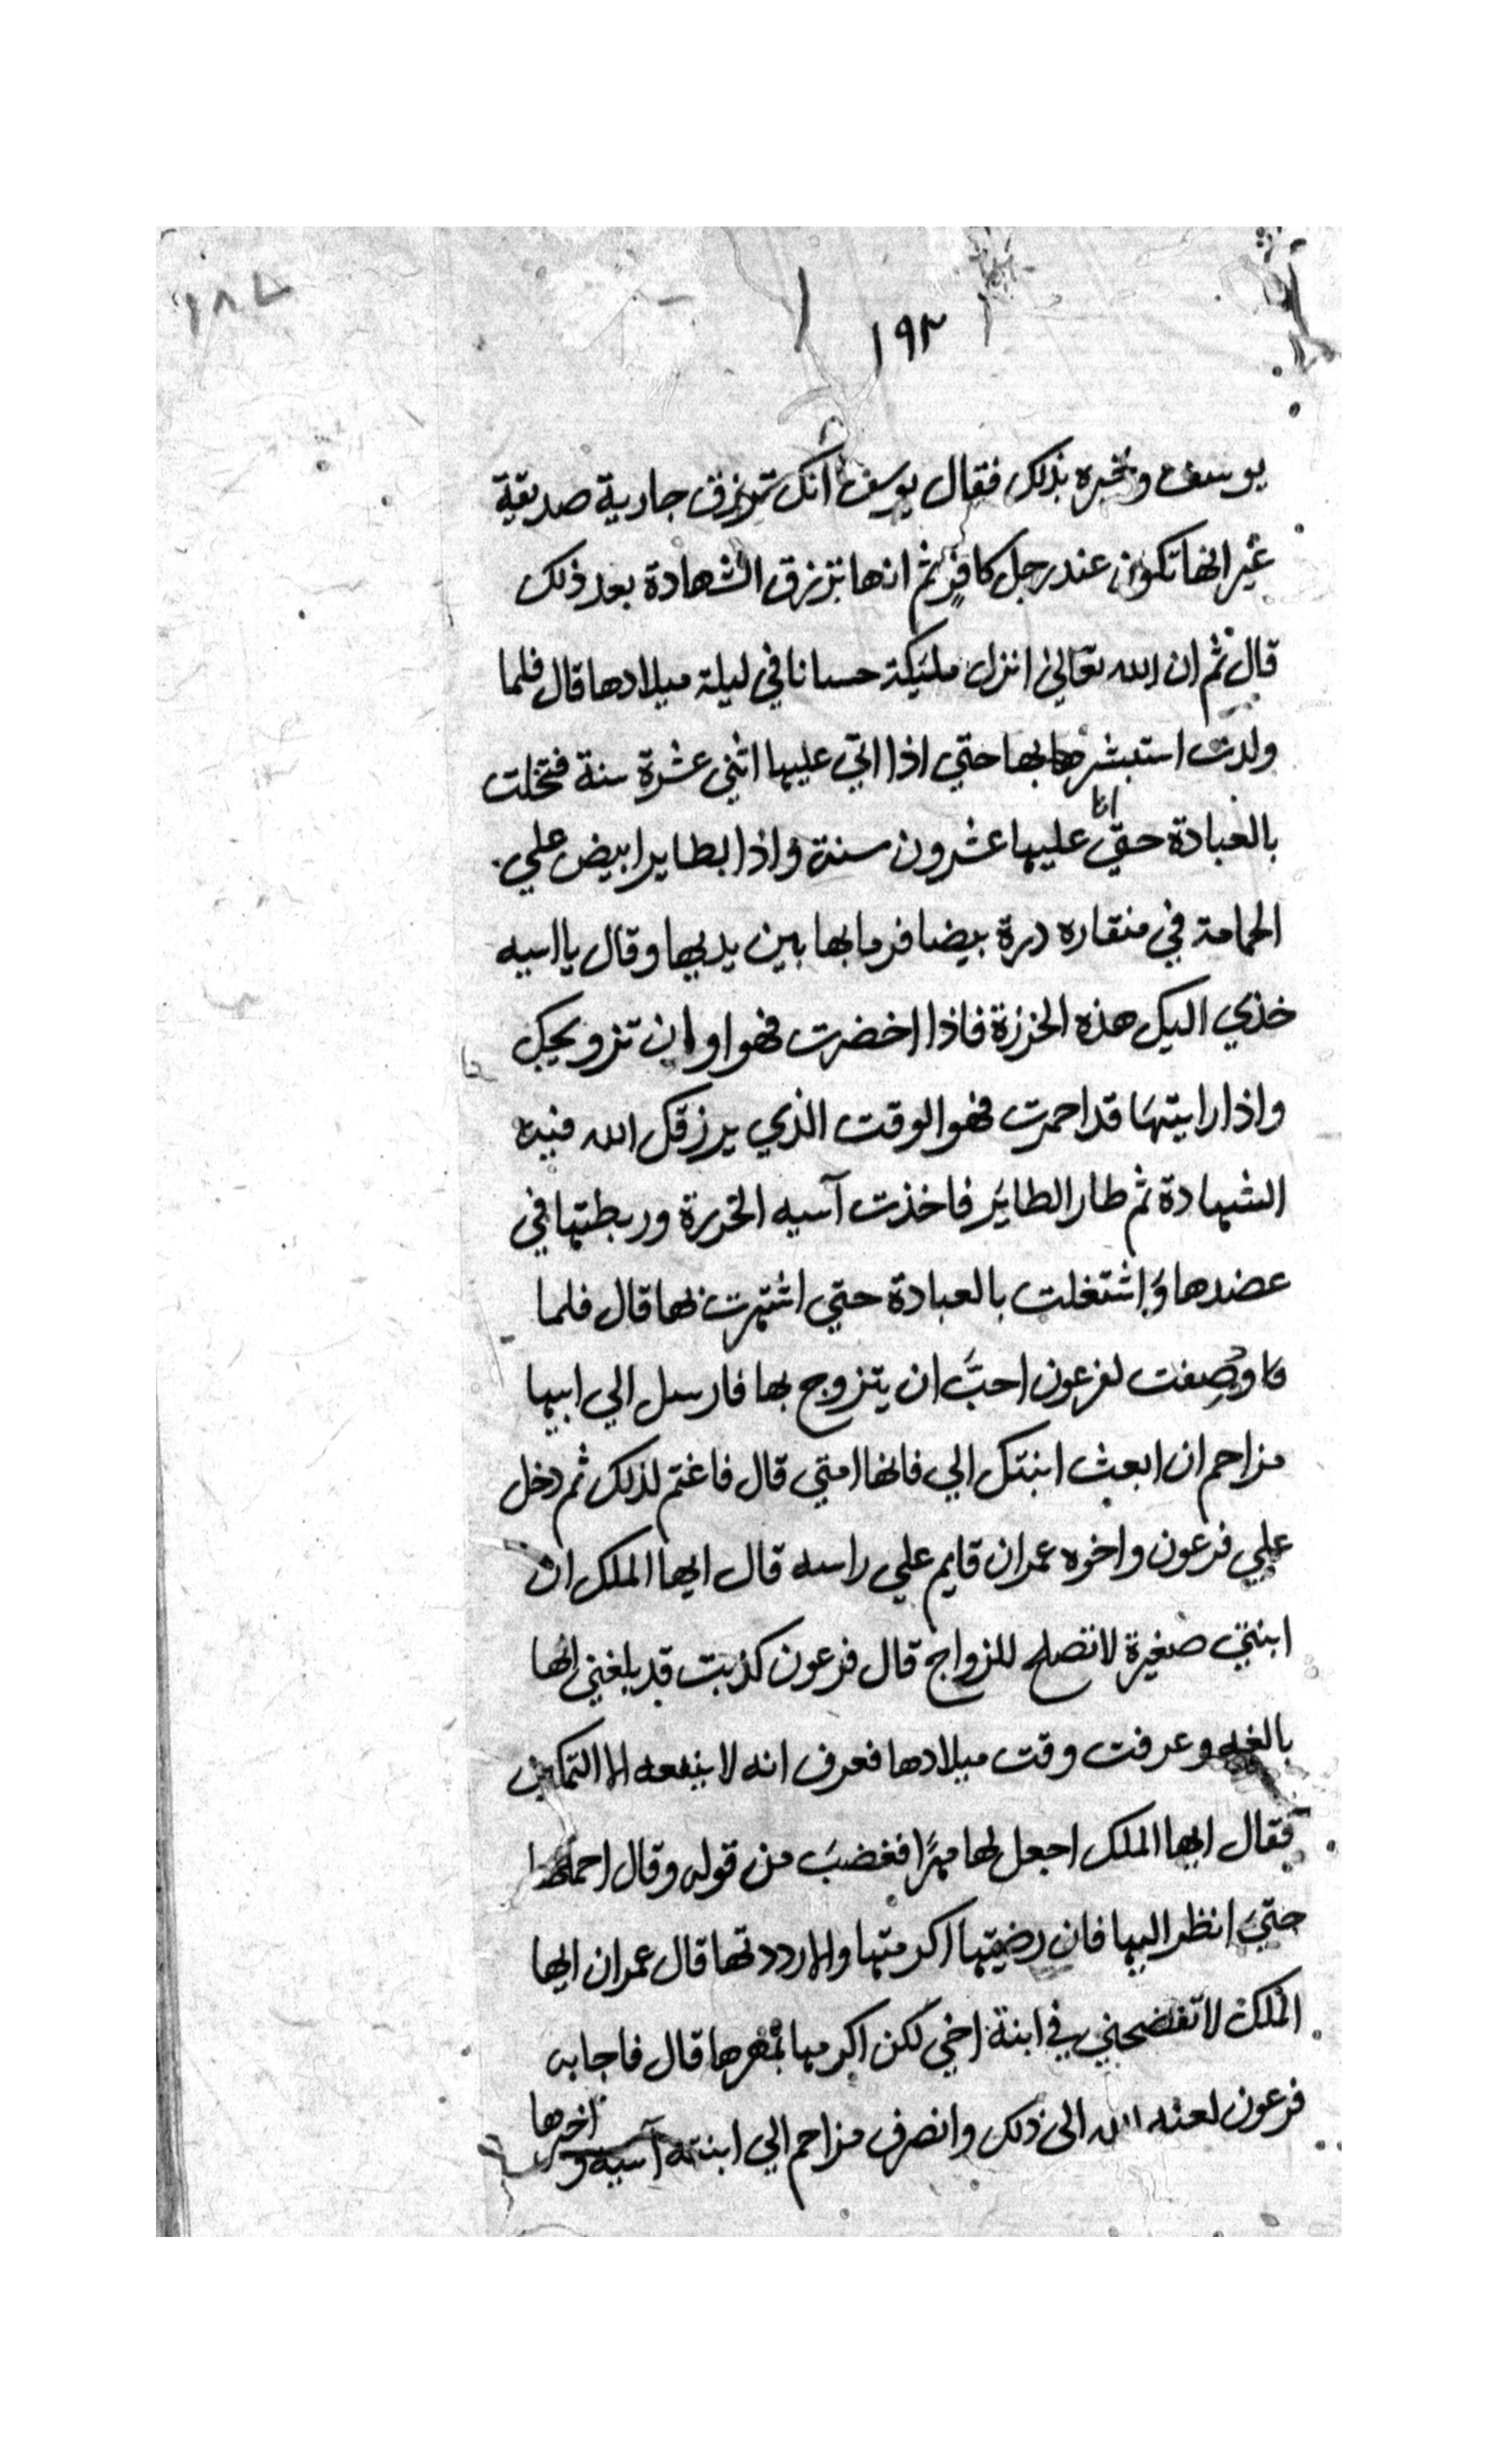 ١٨٦
١٩٢
يوسف ونخبره بذلك فقال يوسف انك ترزق جارية صديقة
غير انها تكون عند رجل كافر ثم انها تزرق الشهادة بعد ذلك
قال ثم ان الله تعالى انزل مليكة حسانا في ليلة ميلادها قال فلما
ولدت استبشر بها حتي اذا اتي عليها اثني عشرة سنة فتخلت
بالعبادة حتي اتا عليها عشرون سنة واذا بطاير ابيض علي
الحمامة في منقاره درة بيضا فرما بها بين يديها وقال يا اسيه
خذي اليك هذه الخرزة فاذا اخضرت فهو اوان تزويجك
واذا رايتها قد احمرت فهو الوقت الذي يرزقك الله فيه
الشهادة ثم طار الطاير فاخذت آسيه الخرزة وربطتها في
عضدها واشتغلت بالعبادة حتي اشتهرت بها قال فلما
وصفت لفرعون احبَّ ان يتزوج بها فارسل الي ابيها
مزاحم ان ابعث ابنتك الي فانها امتي قال فاغتم لذلك ثم دخل
علي فرعون واخوه عمران قايم علي راسه قال ايها الملك ان
ابنتي صغيرة لا تصلح للزواج قال فرعون كذبت قد بلغني انها
بالغه وعرفت وقت ميلادها فعرف انه لا ينفعه الا التمكين
فقال ايها الملك اجعل لها مهرًا فغضبَ من قوله وقال احملها
حتي انظر اليها فان رضيتها اكرمتها والا رددتها قال عمران ايها
الملك لا تفضحني في ابنة اخي لكن اكرمها بمهرها قال فاجابه
فرعون لعنه الله الى ذلك وانصرف مزاحم الي ابنته آسيه واخبرها